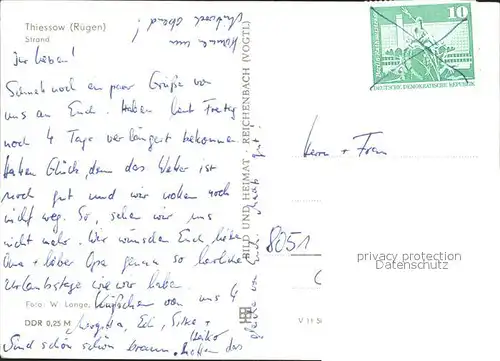 Thiessow (Rügen)
Strand
Ihr Lieben!
Schnell noch ein paar Grüße von
uns an Euch. Haben heut Freitag
noch 4 Tage verlängert bekommen.
Haben Glück, denn das Wetter ist
noch gut und wir wollen noch
nicht weg. So, sehen wir uns
nicht mehr. Wir wünschen Euch, liebe
Oma + lieber Opa genau so herrliche
Urlaubstage wie wir haben.
Foto: W. Lange
Küßchen von uns 4
DDR 0,25 M
Silke +
Heiko
Sind schön braun, hatten das
BILD UND HEIMAT · REICHENBACH (VOGTL)
10
DEUTSCHE DEMOKRATISCHE REPUBLIK
Herrn + Frau
8051
privacy guaranteed
Datenschutz